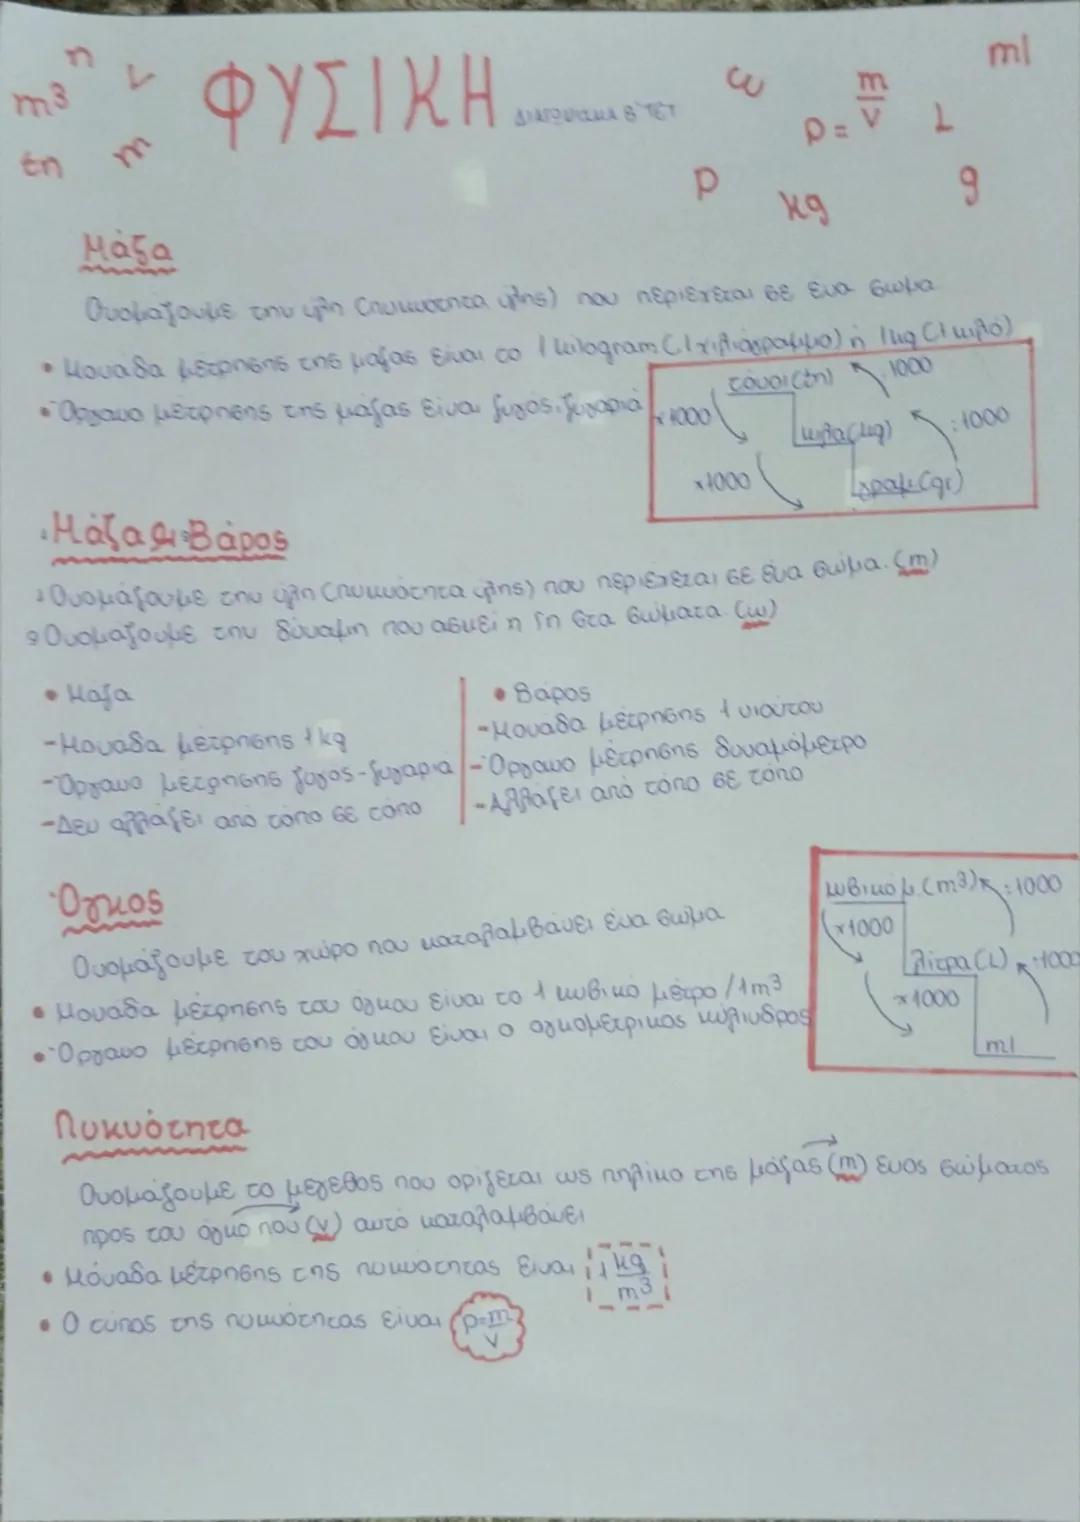 n
m³ v ΦΥΣΙΚΗ ΔΙΑΓΩΝΙΣΜΑ Β΄ΤΕΤ ω p = m/v L ml
tn m p kg g
Μάζα
Ονομάζουμε την ύλη (πυκνότητα ύλης) που περιέχεται σε ένα σώμα
• Μονάδα μέτρησης της μάζας είναι το 1 kilogram (1 χιλιόγραμμο) ή 1kg (1 κιλό)
• Όργανο μέτρησης της μάζας είναι ζυγός, ζυγαριά
τόνοι (tn) :1000
x1000 κιλα (kg) :1000
x1000 γραμ. (gr)
Μάζα & Βάρος
Ονομάζουμε την ύλη (πυκνότητα ύλης) που περιέχεται σε ένα σώμα. (m)
Ονομάζουμε την δύναμη που ασκεί η Γη στα σώματα (w)
• Μάζα
-Μονάδα μέτρησης 1 kg
-Όργανο μέτρησης ζυγός-ζυγαριά
-Δεν αλλάζει από τόπο σε τόπο
• Βάρος
-Μονάδα μέτρησης 1 νιούτον
-Όργανο μέτρησης δυναμόμετρο
-Αλλάζει από τόπο σε τόπο
Όγκος
Ονομάζουμε τον χώρο που καταλαμβάνει ένα σώμα
• Μονάδα μέτρησης του όγκου είναι το 1 κυβικό μέτρο / 1m³
• Όργανο μέτρησης του όγκου είναι ο ογκομετρικός κύλινδρος
κυβικό μ. (m³) :1000
x1000 λίτρα (L) :1000
x1000 ml
Πυκνότητα
Ονομάζουμε το μέγεθος που ορίζεται ως πηλίκο της μάζας (m) ενός σώματος
προς τον όγκο που (v) αυτό καταλαμβάνει
• Μόναδα μέτρησης της πυκνότητας είναι 1 kg/m³
• Ο τύπος της πυκνότητας είναι p=m/v